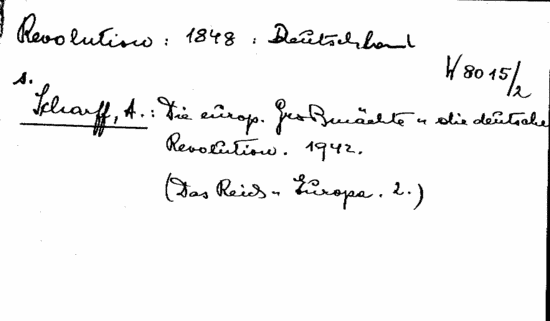 Revolution : 1848 : Deutschland
W 8015/2
s.
Scharff, A.: Die europ. Großmächte u. die deutsche
Revolution. 1942.
(Das Reich u. Europa. 2.)